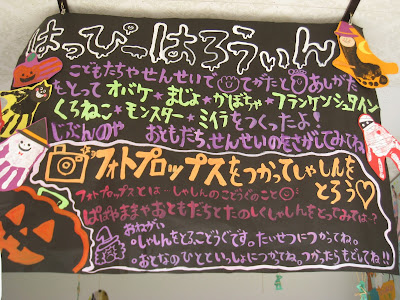 はっぴーはろうぃん
こどもたちやせんせいで てがたと あしがた
をとって オバケ★まじょ★かぼちゃ★フランケンシュタイン
くろねこ★モンスター★ミイラをつくったよ!
じぶんのや おともだち、せんせいのをさがしてみてね
フォトプロップスをつかってしゃしんを
とろう♡
フォトプロップスとは…しゃしんのこどうぐのこと
ぱぱやままやおともだちとたのしくしゃしんをとってみては…?
おねがい
・しゃしんをとるこどうぐです。たいせつにつかってね。
・おとなのひとといっしょにつかってね。つかったらもどしてね!!